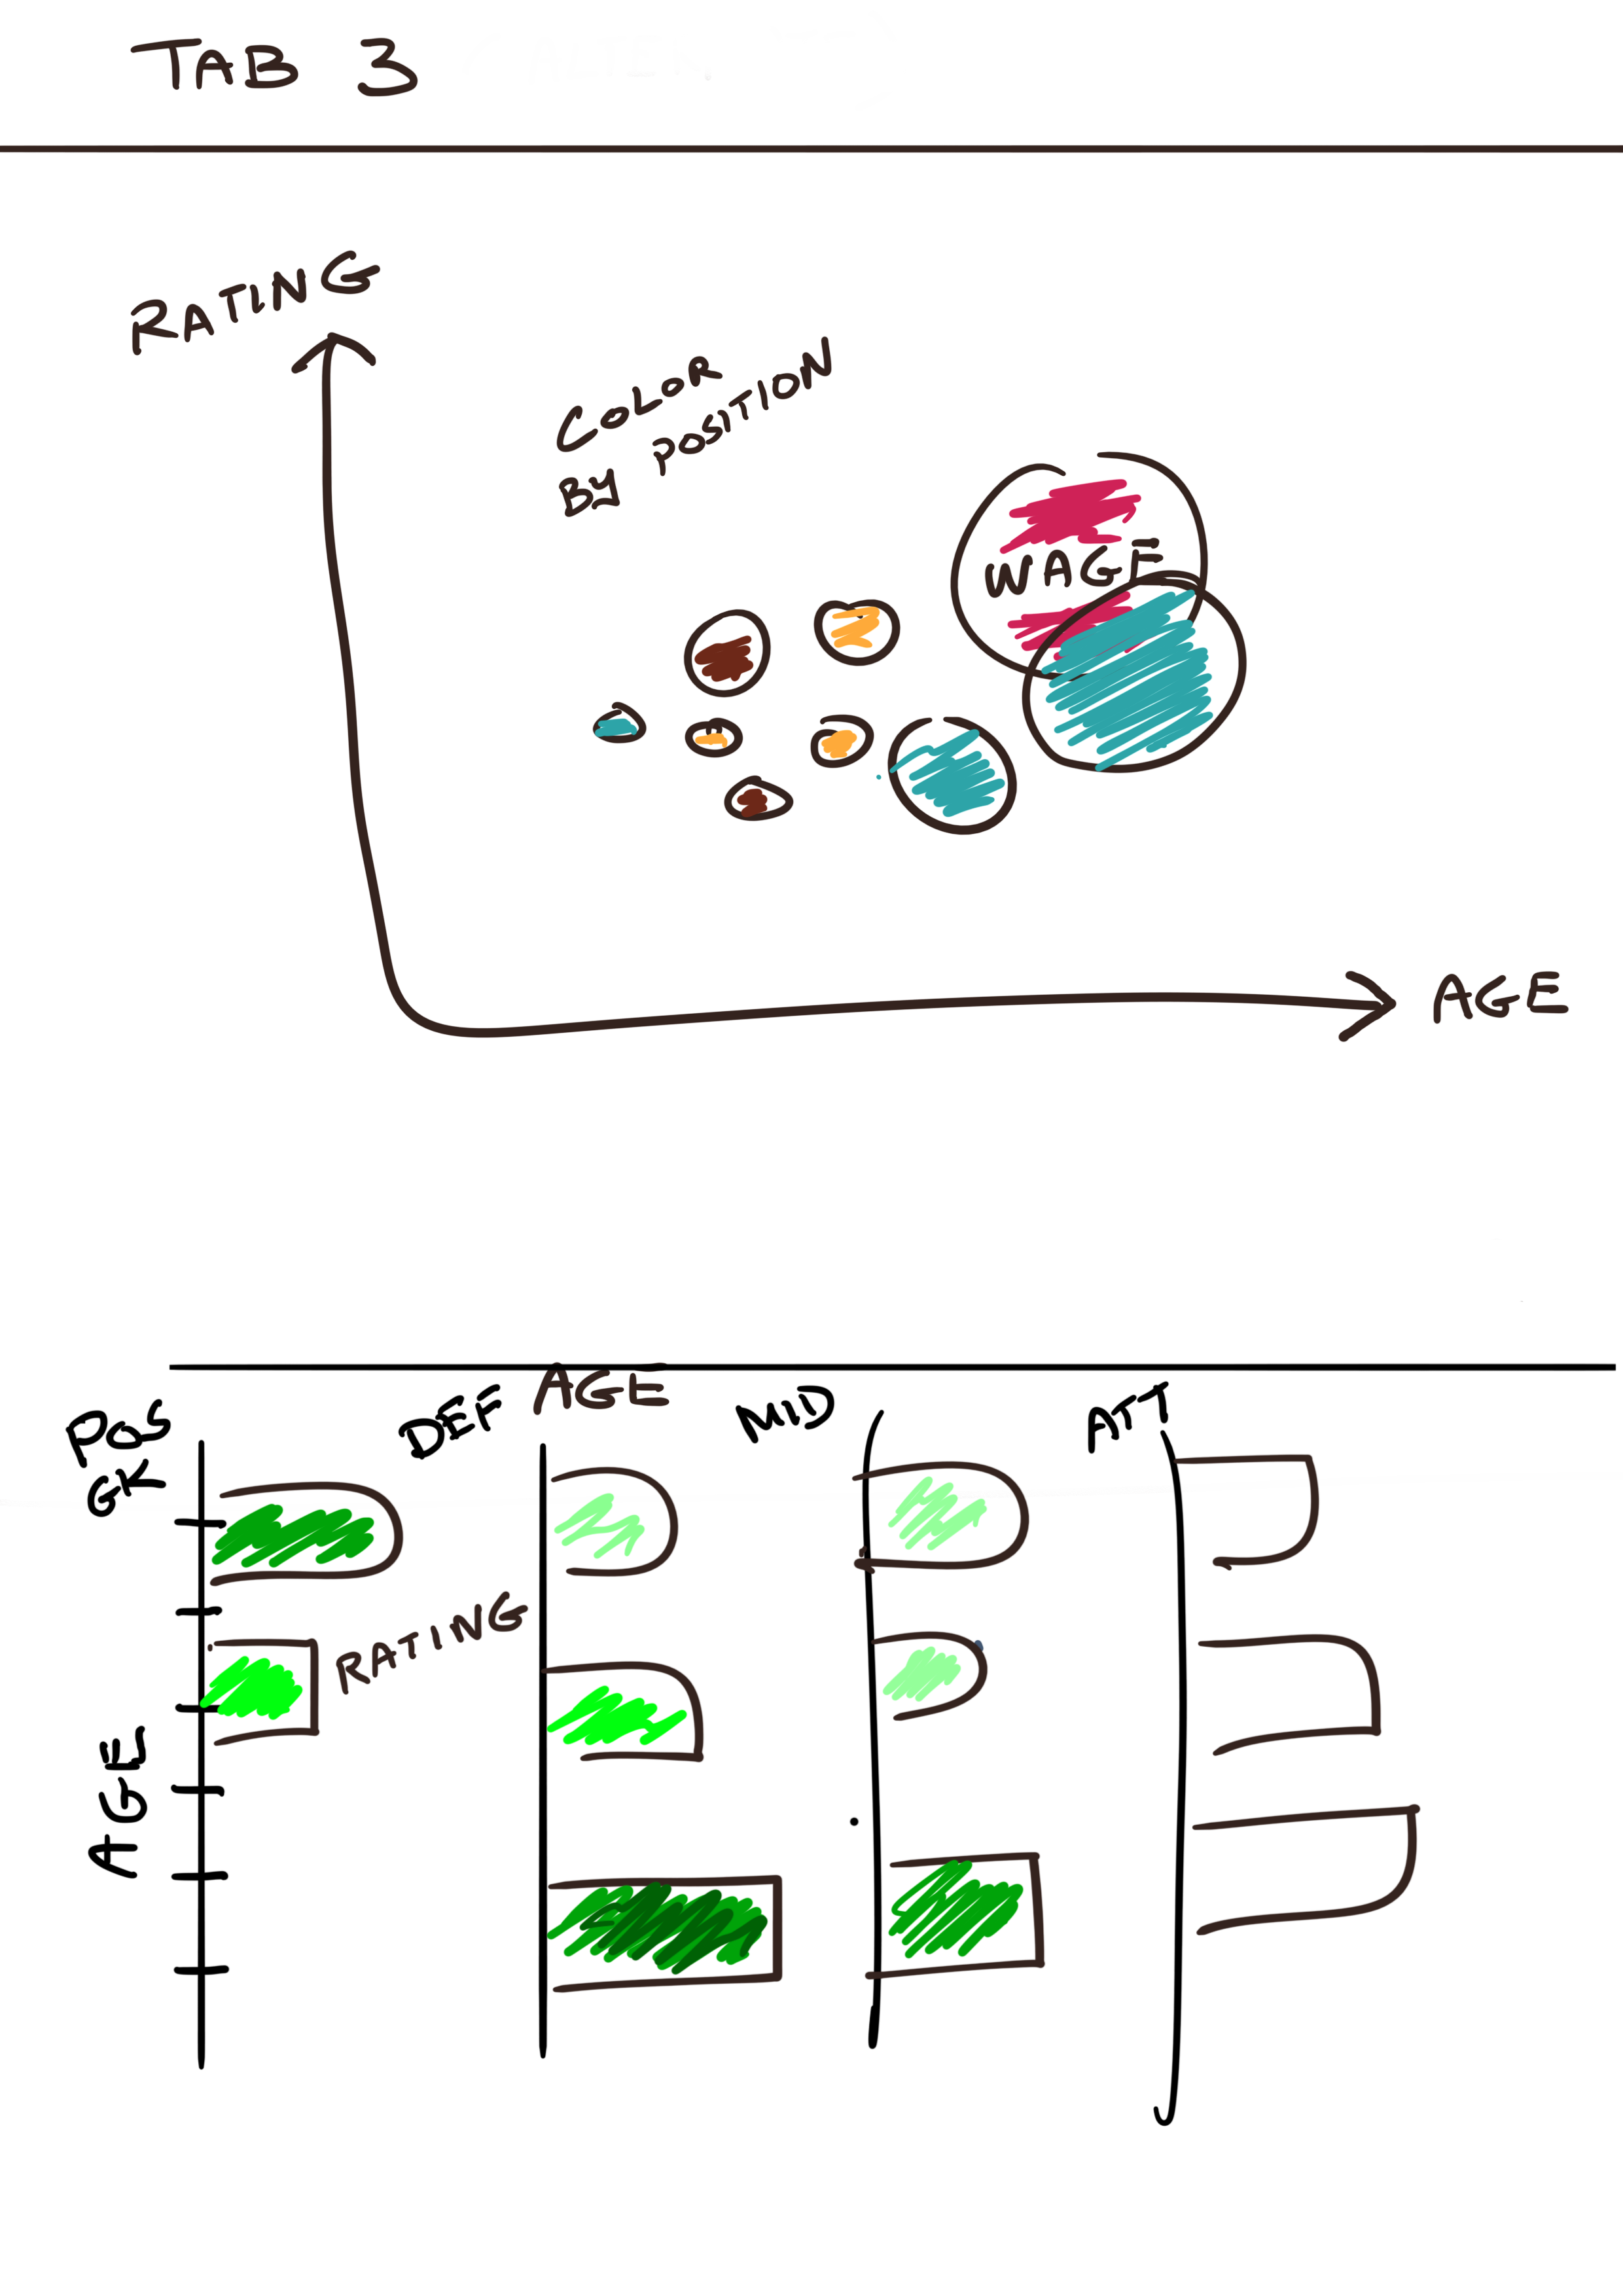 TAB 3
RATING
COLOR
BY POSITION
WAGE
AGE
AGE
POS
GK
DEF
MID
ATT
RATING
AGE